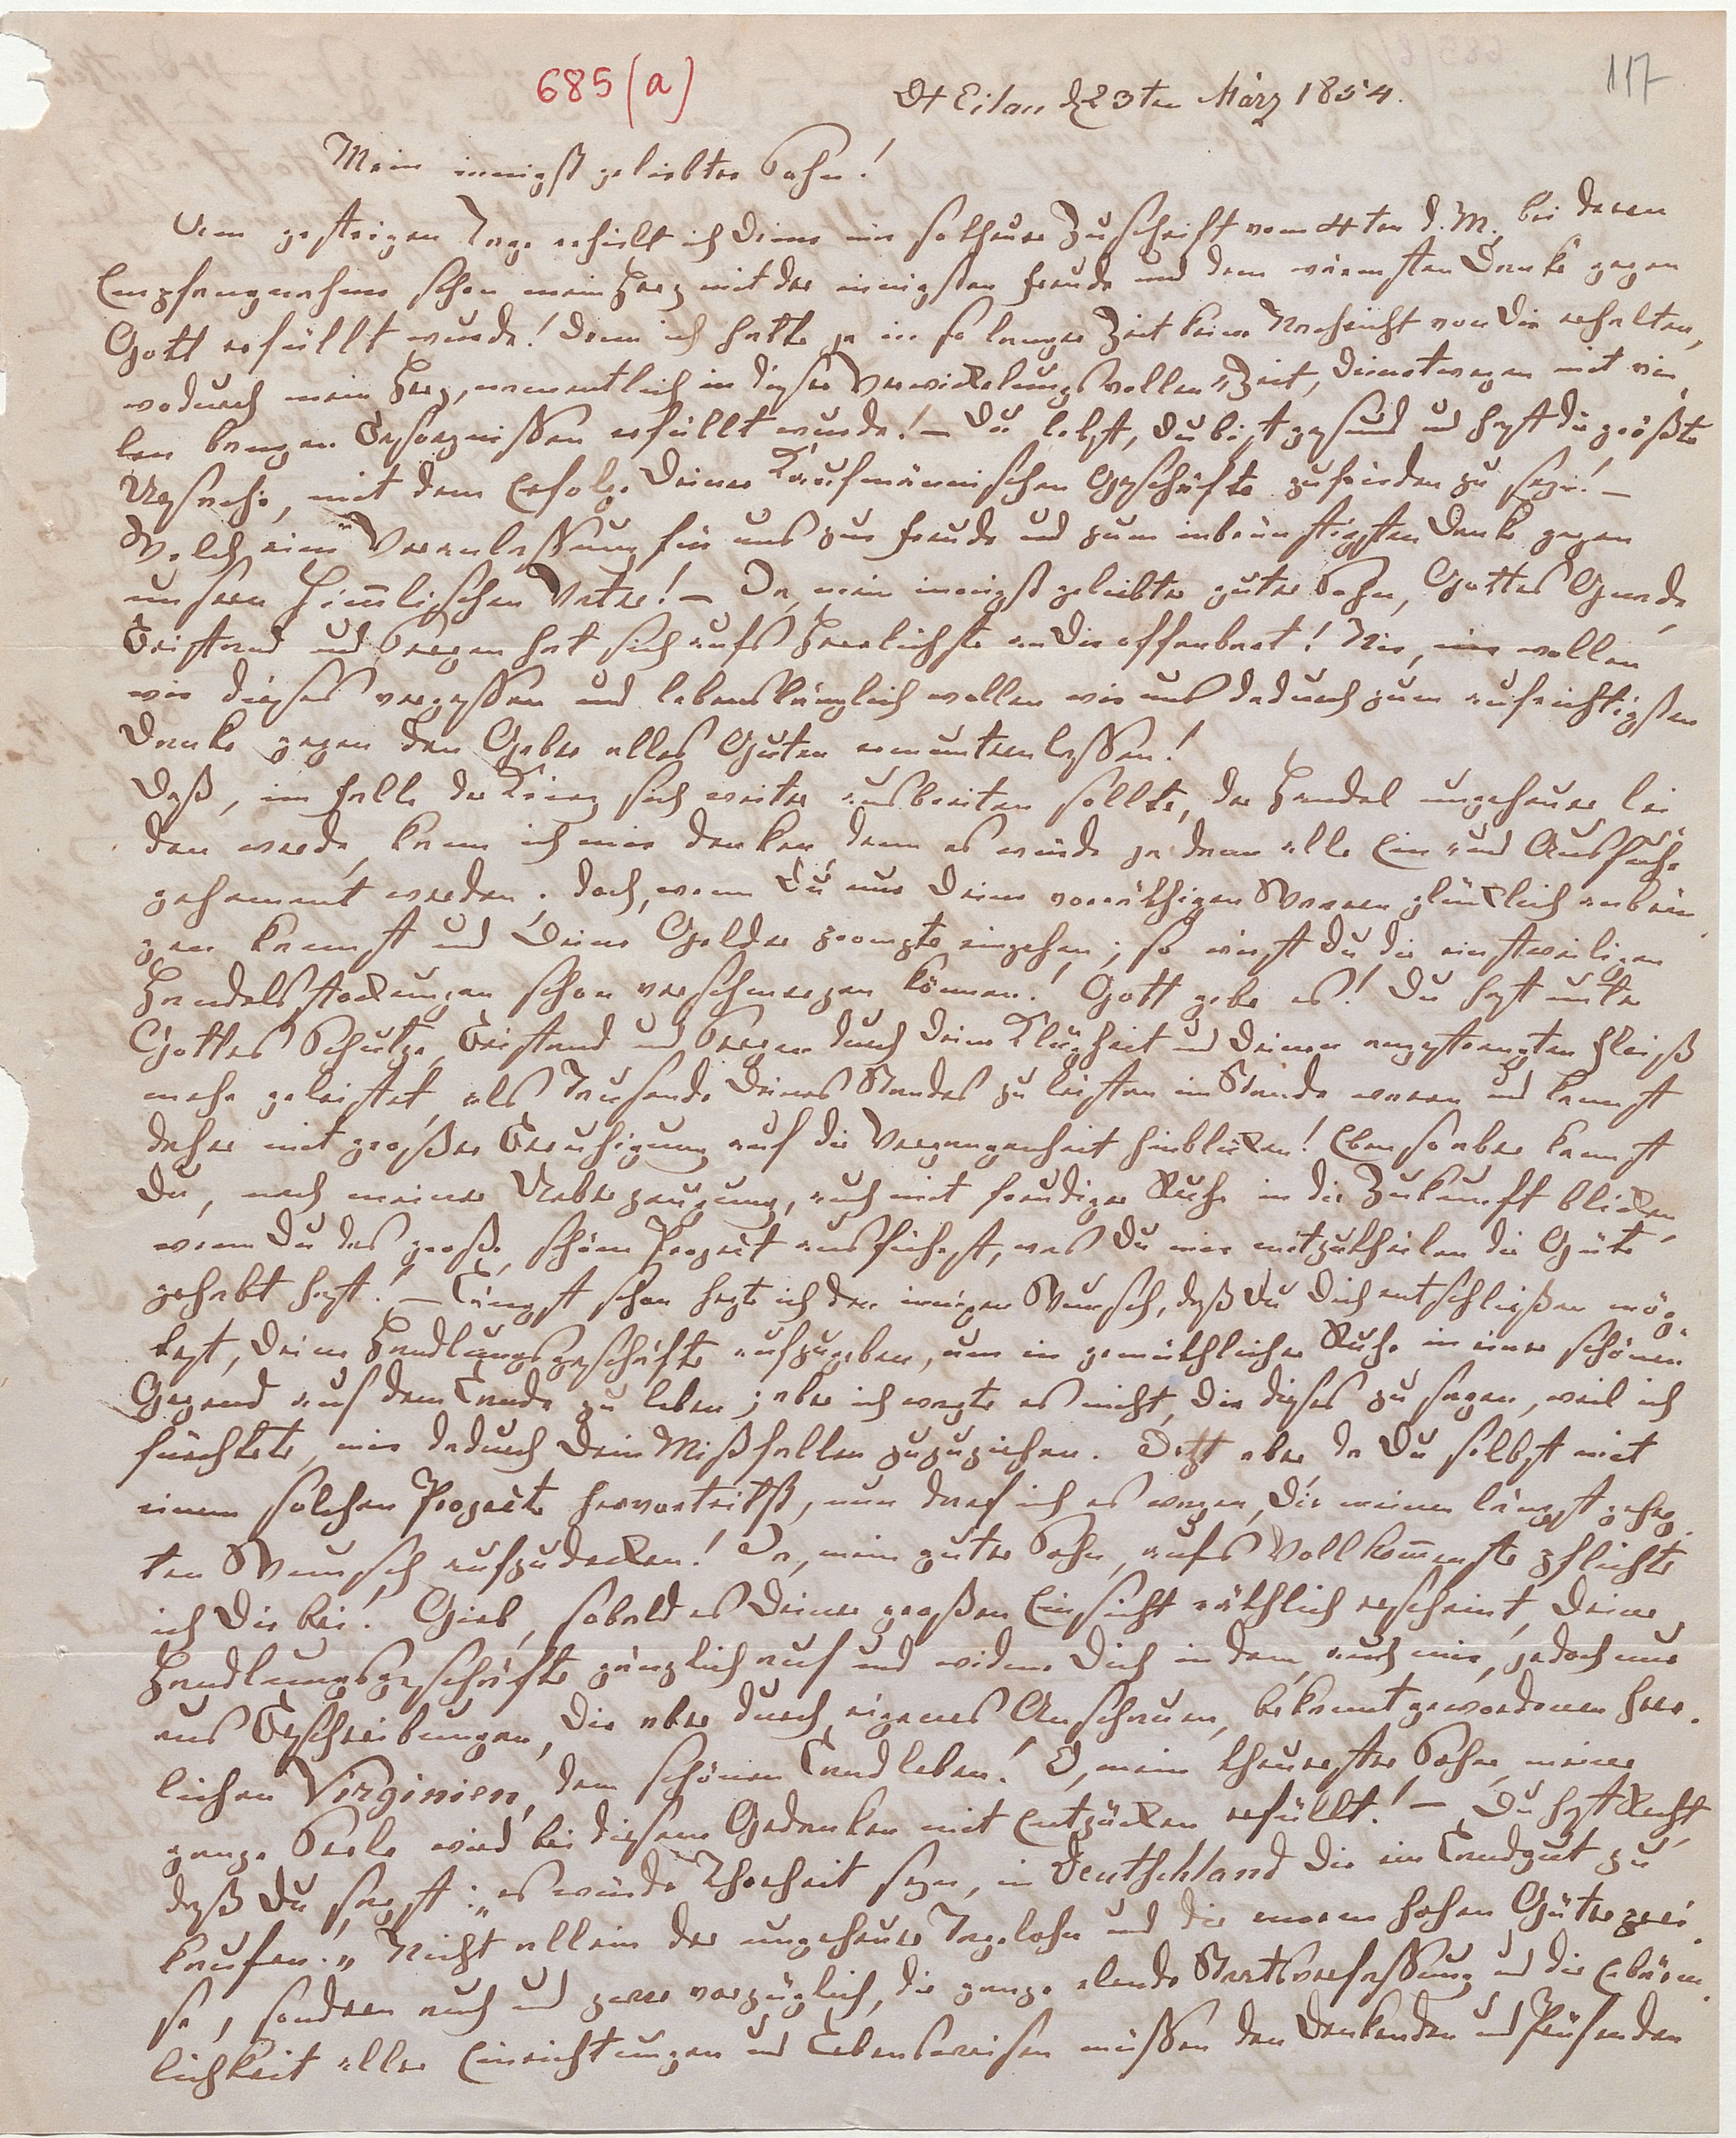 117
685 (a)
Dt Eilau d 23ten März 1854.
Mein innigst geliebter Sohn!
Am gestrigen Tage erhielt ich Deine mir so theure Zuschrift vom 4ten d. M., bei deren
Empfangnahme schon mein Herz mit der innigsten Freude und dem wärmsten Danke gegen
Gott erfüllt wurde! Denn ich hatte ja in so langer Zeit keine Nachricht von Dir erhalten,
wodurch mein Herz, namentlich in dieser Verwickelungsvollen Zeit, Deinetwegen mit vie
len bangen Besorgnissen erfüllt wurde! – Du lebst, Du bist gesund und hast die größte
Ursache, mit dem Erfolge Deiner Kaufmännischen Geschäfte zufrieden zu sein! –
Welch eine Veranlassung für uns zur Freude und zum inbrünstigsten Danke gegen
unsern Himmlischen Vater! – Ja, mein innigst geliebter guter Sohn, Gottes Gnade,
Beistand und Seegen hat sich aufs Herrlichste an Dir offenbart! Nie, nie wollen
wir dieses vergessen und lebenslänglich wollen wir uns dadurch zum aufrichtigsten
Danke gegen den Geber alles Guten ermuntern lassen!
Daß, im Falle der Krieg sich weiter ausbreiten sollte, der Handel ungeheuer lei
den werde, kann ich mir denken, denn es würde ja dann alle Ein und Ausfuhr
gehemmt werden. Doch, wenn Du nur Deine vorräthigen Waaren glücklich anbrin
gen kannst und Deine Gelder prompte eingehen; so wirst Du die einstweiligen
Handelsstockungen schon verschmerzen können! Gott gebe es! Du hast unter
Gottes Schutze, Beistand und Seegen durch Deine Klugheit und Deinen angestrengten Fleiß
mehr geleistet, als Tausende Deines Standes zu leisten im Stande waren und kannst
daher mit großer Beruhigung auf die Vergangenheit hinblicken! Eben so aber kannst
Du, nach meiner Ueberzeugung, auch mit freudiger Ruhe in die Zukunft blicken,
wenn Du das große, schöne Project ausführst, was Du mir mitzutheilen die Güte
gehabt hast! – Längst schon hegte ich den innigen Wunsch, daß Du Dich entschließen mög
test, Deine Handlungsgeschäfte aufzugeben, um in gemüthlicher Ruhe in einer schönen
Gegend auf dem Lande zu leben; aber ich wagte es nicht, Dir dieses zu sagen, weil ich
fürchtete, mir dadurch Dein Mißfallen zuzuziehen. Jetzt aber da Du selbst mit
einem solchen Projecte hervortrittst, nun darf ich es wagen, Dir meinen längst geheg
ten Wunsch aufzudecken! Ja, mein guter Sohn, aufs Vollkommenste pflichte
ich Dir bei! Gieb, sobald es Deiner großen Einsicht räthlich erscheint, Deine
Handlungsgeschäfte gänzlich auf und widme Dich in dem, auch mir, jedoch nur
aus Beschreibungen, Dir aber durch eigenes Anschauen, bekannt gewordenen herr
lichen Virginien, dem schönen Landleben! O, mein theuerster Sohn, meine
ganze Seele wird bei diesem Gedanken mit Entzücken erfüllt! – Du hast Recht,
daß Du sagst: „es würde Thorheit seyn, in Deutschland Dir ein Landgut zu
kaufen.„ Nicht allein der ungeheure Tagelohn und die enorm hohen Güterprei
se, sondern auch und zwar vorzüglich, die ganze elende Staatsverfassung und die Erbärm
lichkeit aller Einrichtungen und Lebensweisen müssen den Denkenden und Prüfenden